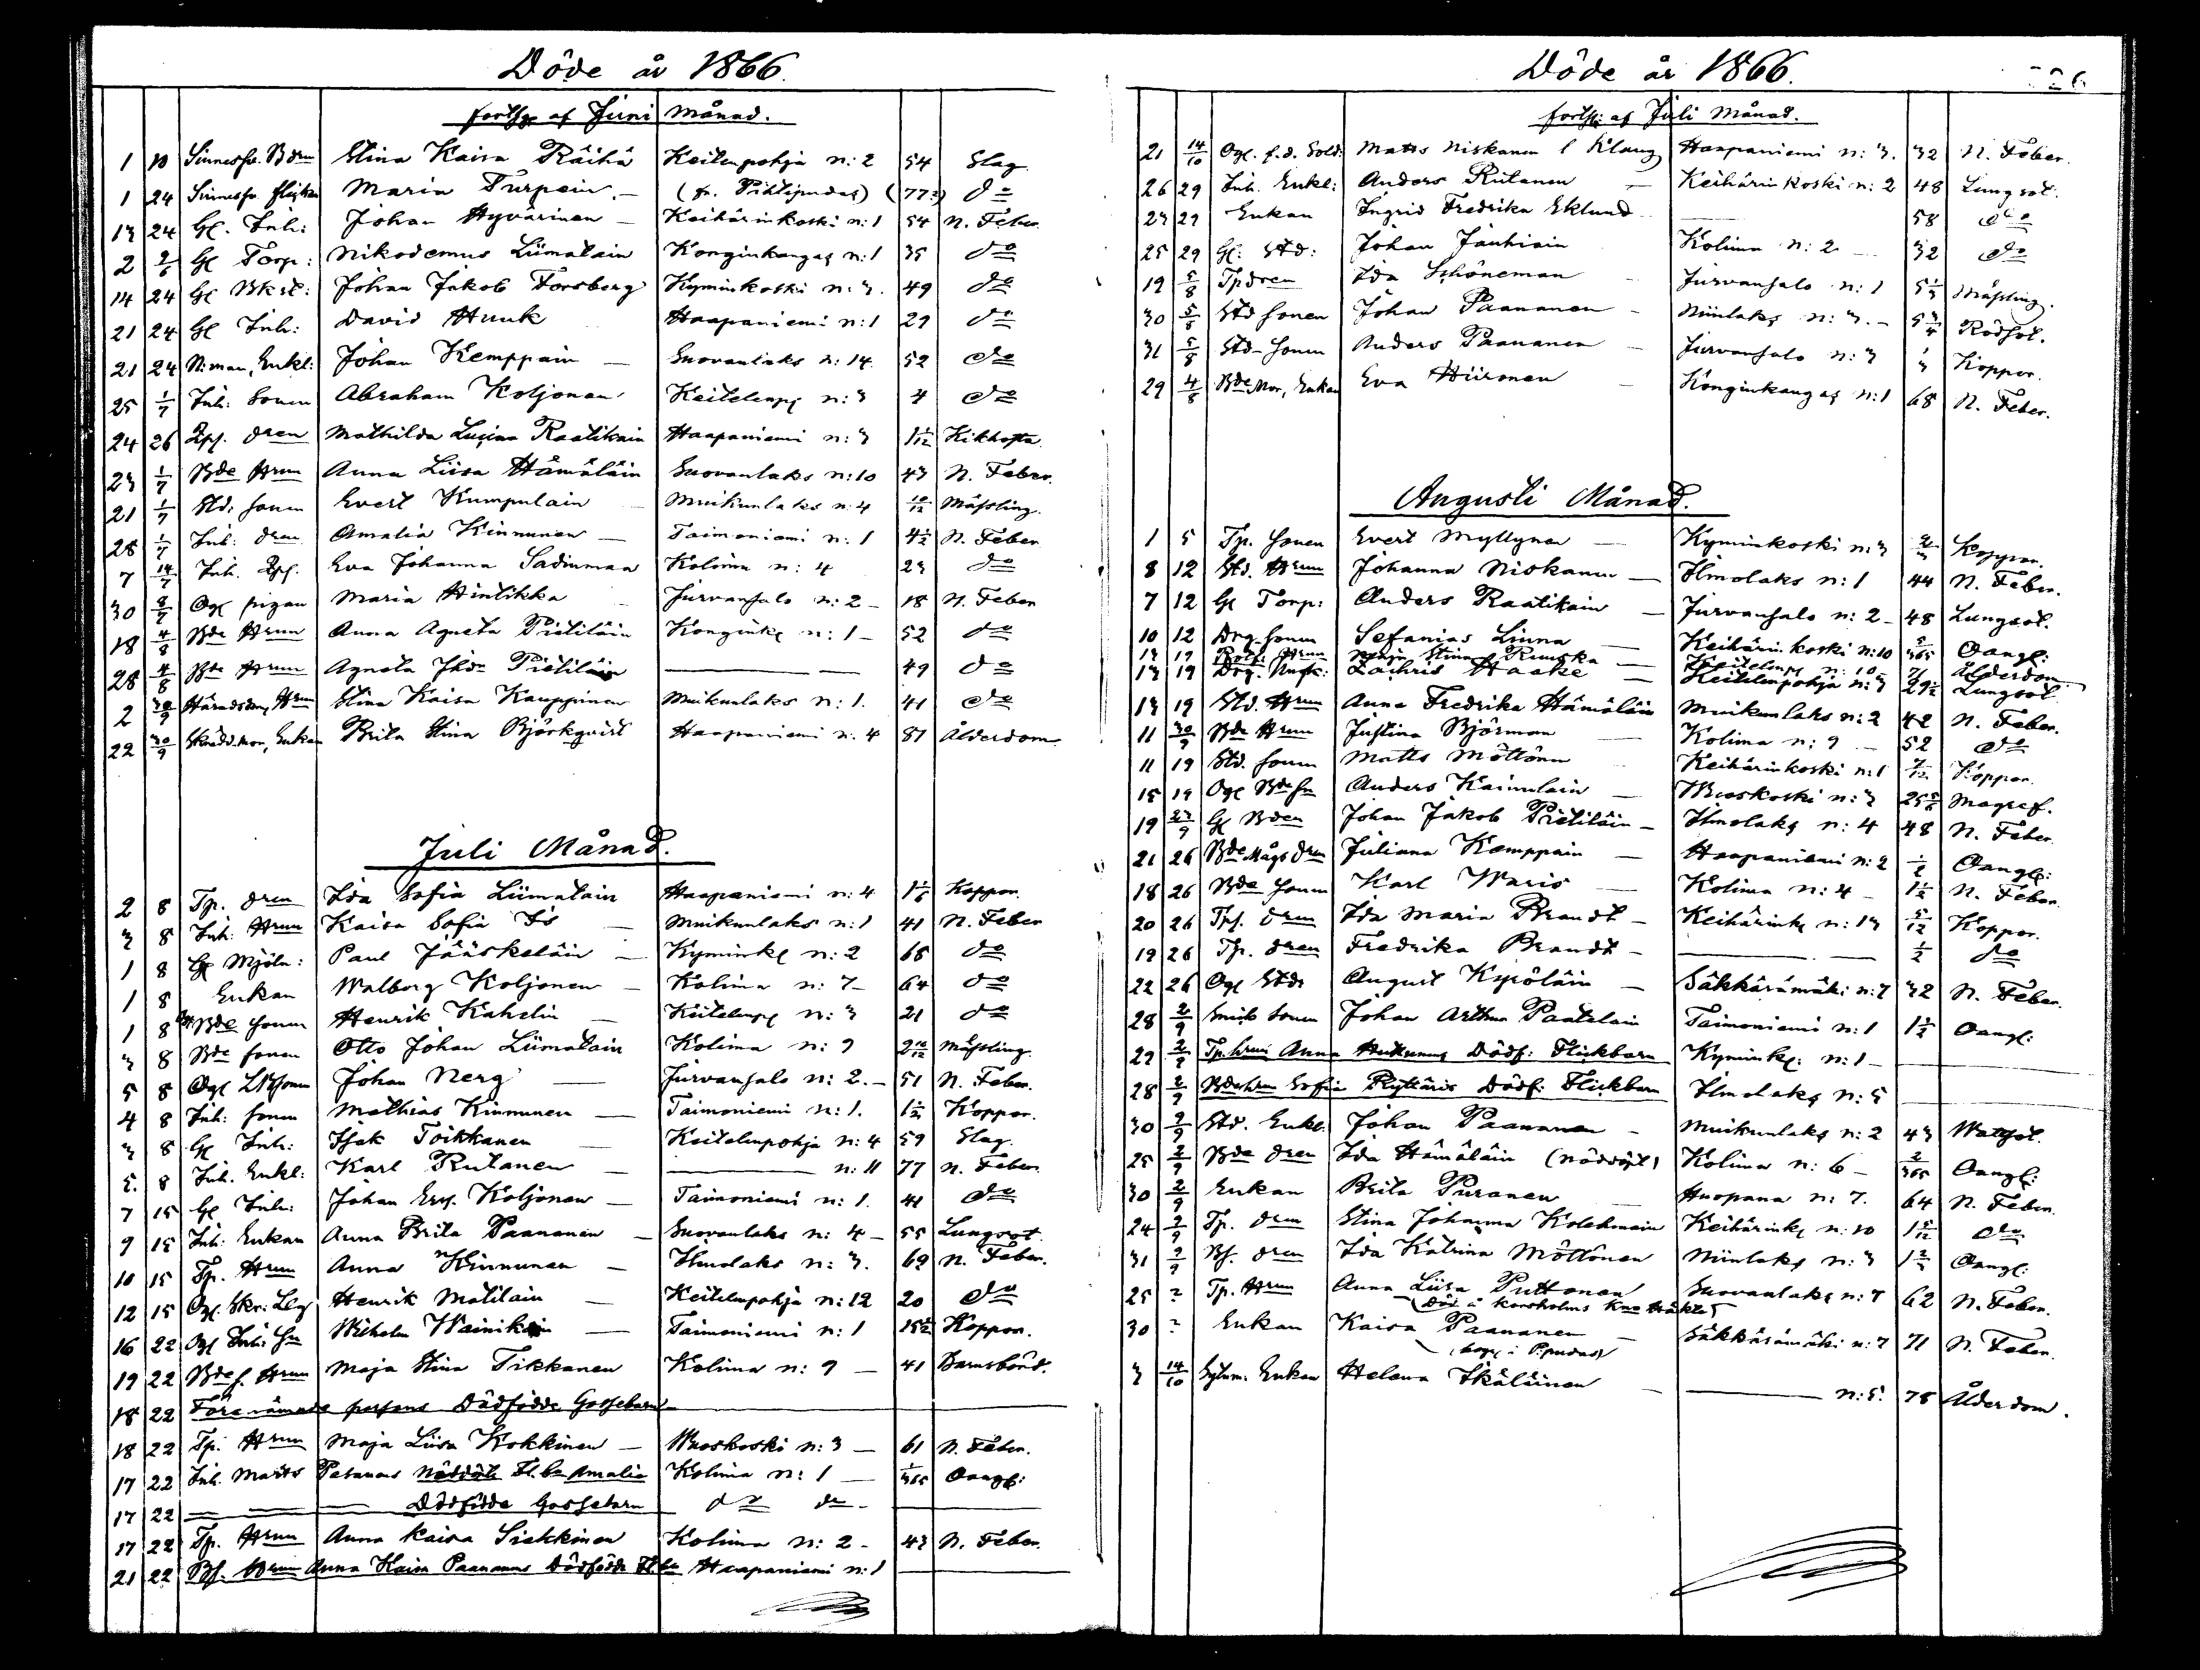 Döde år 1866.
forts: af Juni Månad.
1 10 Sinnessv. Bdrn Stina Kaisa Räihä Keitelenpohja n: 2 54 Slag.
1 24 Sinnessv. flickan Maria Turpein — (fr. Pihtipudas) (77?) do
13 24 Gl. Inh: Johan Hyvärinen — Keihärinkoski n: 1 54 N. Feber.
2 2/6 Gl Torp: Nikodemus Liimatain Konginkangas n: 1 35 do
14 24 Gl Johan Jakob Forsberg Kyminkoski n: 3. 49 do
21 24 Gl Inh: David Hunk Haapaniemi n: 1 29 do
21 24 N:man, Enkl: Johan Kemppain — Suovanlaks n: 14 52 do
25 1/7 Inh: Sonen Abraham Koljonen Keitelenpj n: 3 4 do
24 26 dren Mathilda Lusina Raatikain Haapaniemi n: 3 1 1/12 Kikhosta.
23 1/7 Bde Hrun Anna Liisa Hämäläin Suovanlaks n: 10 43 N. Feber.
21 1/7 Std. sonen Evert Kumpulain — Muikunlaks n: 4 10/12 Mässling.
28 1/7 Inh: dren Amalia Kinnunen — Taimoniemi n: 1 4 1/2 N. Feber
7 14/7 Inh. Eva Johanna Sadinmaa Kolima n: 4 23 do
30 8/7 Ogl pigan Maria Hintikka Jurvansalo n: 2 — 18 N. Feber
18 4/8 Bde Hrun Anna Agneta Pietiläin Konginkg n: 1 — 52 do
28 4/8 Bde Hrun Agneta Pietiläin — — 49 do
2 30/9 Häradsdmg Hrun Stina Kaisa Kauppinen Muikunlaks n: 1. 41 do
22 30/9 Skrädd.mor, Enkan Brita Stina Björkqvist Haapaniemi n: 4 87 Ålderdom
Juli Månad.
2 8 Tp. dren Ida Sofia Liimatain Haapaniemi n: 4 1 1/6 Koppor.
3 8 Inh: Hrun Kaisa Sofia Is — Muikunlaks n: 1 41 N. Feber
1 8 Gl Mjöln: Paul Jääskeläin — Kyminkg n: 2 68 do
1 8 Enkan Walborg Koljonen — Kolima n: 7 — 64 do
1 8 Bde sonen Henrik Kahelin — Keitelenpj n: 3 21 do
3 8 Bde sonen Otto Johan Liimatain Kolima n: 9 2 10/12 Mässling
5 8 Ogl Johan Nerg — Jurvansalo n: 2. — 51 N. Feber.
4 8 Inh: sonen Mathias Kinnunen — Taimoniemi n: 1. 1 1/2 Koppor.
3 8 Gl Inh: Isak Toikkanen — Keitelenpohja n: 4 59 Slag.
5. 8 Inh. Enkl: Karl Rutanen — — n: 11 77 N. Feber.
7 15 Gl Inh: Johan Koljonen — Taimoniemi n: 1. 41 do
9 15 Inh: Enkan Anna Brita Paananen — Suovanlaks n: 4 — 55 Lungsot
10 15 Tp. Hrun Anna Kinnunen — Ilmolaks n: 3. 69 N. Feber.
12 15 Ogl. Henrik Matilain — Keitelenpohja n: 12 20 do
16 22 Ogl Inh: Sn Wilhelm Wainikain — Taimoniemi n: 1 15 1/2 Koppor.
19 22 Bdes. Hrun Maja Stina Tikkanen Kolima n: 9 — 41 Barnsbörd.
18 22 Förenämnde persons Dödfödda Gossebarn —
18 22 Tp. Hrun Maja Liisa Kokkinen — Wuoskoski n: 3 — 61 N. Feber.
17 22 Inh. Matts Petanens nöddöpt Fl.bn Amalia Kolima n: 1 — 1/365 Oangf:
17 22 — — — Dödfödda Gossebarn do do —
17 22 Tp. Hrun Anna Kaisa Siekkinen Kolima n: 2 — 43 N. Feber.
21 22 Hrun Anna Kaisa Paananens Dödfödda Fl.bn Haapaniemi n: 1
Döde år 1866.
forts: af Juli Månad.
21 14/10 Ogl. f.d. Sold: Matts Niskanen l Klang Haapaniemi n: 3. 32 N. Feber.
26 29 Inh. Enkl: Anders Rutanen — Keihärinkoski n: 2 48 Lungsot.
23 29 Enkan Ingrid Fredrika Eklund — 58 do
25 29 Gl: Std: Johan Jauhiain Kolima n: 2 — 32 do
19 5/8 Tpdren Ida Schöneman — Jurvansalo n: 1 5 1/3 Mässling.
30 5/8 Std sonen Johan Paananen — Niinlaks n: 3. — 5 3/4 Rödsot.
31 5/8 Std- sonen Anders Paananen — Jurvansalo n: 3 1/3 Koppor.
29 4/8 Bde Mor, Enkan Eva Hiironen — Konginkangas n: 1 68 N. Feber.
Augusti Månad.
1 5 Tp. sonen Evert Myllynen — Kyminkoski n: 3 2/3 Koppor.
8 12 Std. Hrun Johanna Niskanen — Ilmolaks n: 1 44 N. Feber.
7 12 Gl Torp: Anders Raatikain — Jurvansalo n: 2 — 48 Lungsot.
10 12 Drg. sonen Sefanias Linna — Keihärinkoski n: 10 5/365 Oangf:
13 19 Hrun Maja Stina Ruuska — Keitelenpj n: 10 Ålderdom.
13 19 Drg. Zachris Haake — Keitelenpohja n: 3 29 1/2 Lungsot.
13 19 Std. Hrun Anna Fredrika Hämäläin Muikunlaks n: 2 42 N. Feber.
11 30/9 Bde Hrun Justina Björman — Kolima n: 9 — 52 do
11 19 Std. sonen Matts Möttönen — Keihärinkoski n: 1 7/12 Koppor.
15 19 Ogl Bde Sn Anders Kainulain — Wuoskoski n: 3 25 5/6 Magref.
19 23/9 Gl Bden Johan Jakob Pietiläin — Ilmolaks n: 4 48 N. Feber.
21 26 Bde Mågs dren Juliana Kemppain — Haapaniemi n: 2 1/2 Oangf:
18 26 Bde sonen Karl Waris — Kolima n: 4 — 1 1/2 N. Feber.
20 26 Tp. dren Ida Maria Brandt — Keihärinkg n: 13 5/12 Koppor.
19 26 Tp. dren Fredrika Brandt — — 1/2 do
22 26 Ogl Std: August Kypöläin — Säkkärämäki n: 7 32 N. Feber.
28 2/9 Smeds sonen Johan Arthur Paatelain Taimoniemi n: 1 1 1/2 Oangf:
29 2/9 Tp.hrun Anna Hakunens Dödf: Flickbarn Kyminkg: n: 1 —
28 2/9 Bdehrun Sofia Ryttäris Dödf: Flickbarn Ilmolaks n: 5 —
30 2/9 Std. Enkl. Johan Paananen — Muikunlaks n: 2 43 Wattsot.
25 2/9 Bde dren Ida Hämäläin (nöddöpt) Kolima n: 6 — 2/365 Oangf:
30 2/9 Enkan Brita Puranen — Huopana n: 7. 64 N. Feber.
24 2/9 Tp. dren Stina Johanna Kolehmain Keihärinkg n: 10 1 5/12 do
31 9/9 dren Ida Katrina Möttönen Niinlaks n: 3 1 2/3 Oangf:
25 ? Tp. Hrun Anna Liisa Puttonen Suovanlaks n: 7 62 N. Feber.
(Död å Korsholms
30 ? Enkan Kaisa Paananen — Säkkärämäki n: 7 71 N. Feber.
(begr. i P:pudas)
3 14/10 Enkan Helena Ikäläinen — — n: 5. 75 Ålderdom.